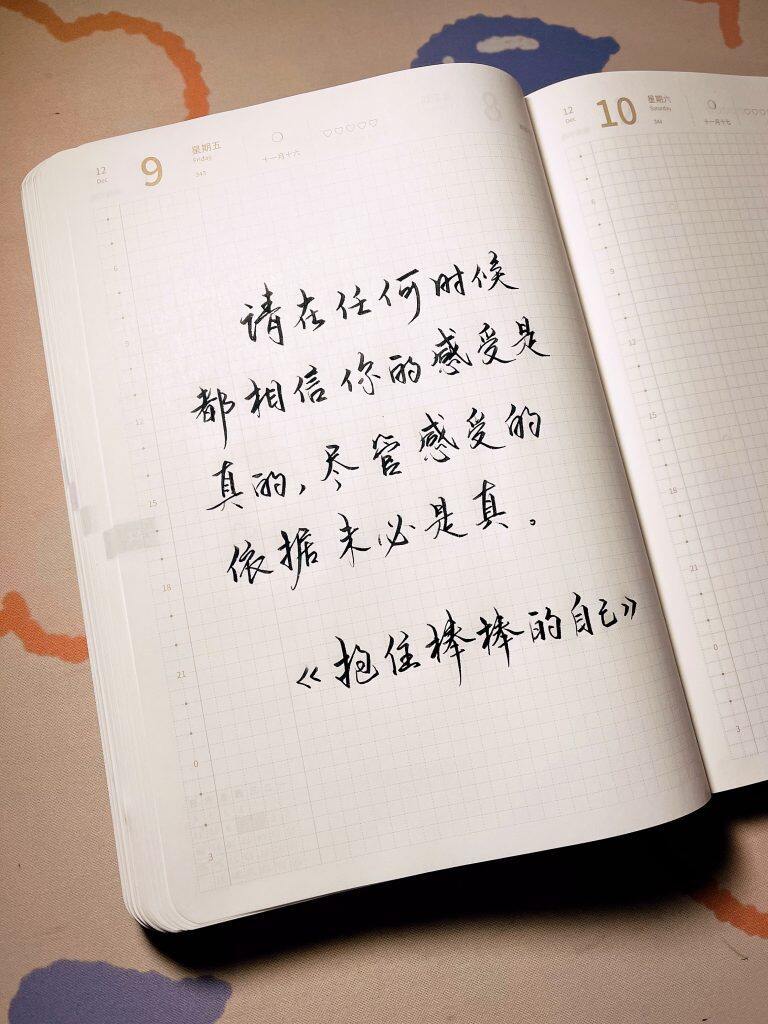 12
Dec
9
星期五
Friday
343
十一月十六
♡♡♡♡♡
8
6
9
12
15
18
21
0
3
请在任何时候
都相信你的感受是
真的,尽管感受的
依据未必是真。
《抱住棒棒的自己》
12
Dec
10
星期六
Saturday
344
十一月十七
6
9
12
15
18
21
0
3